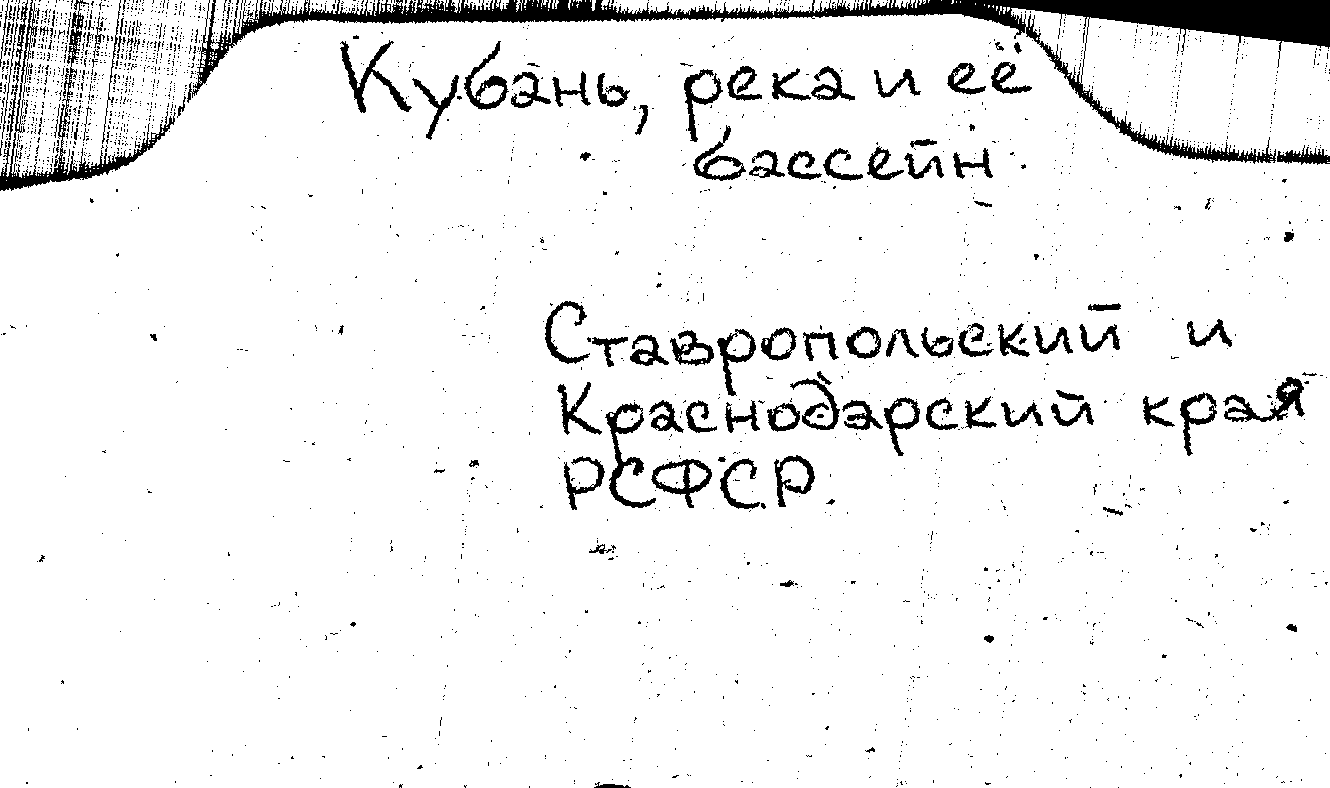 Кубань, река и её
бассейн
Ставропольский и
Краснодарский края
РСФСР.